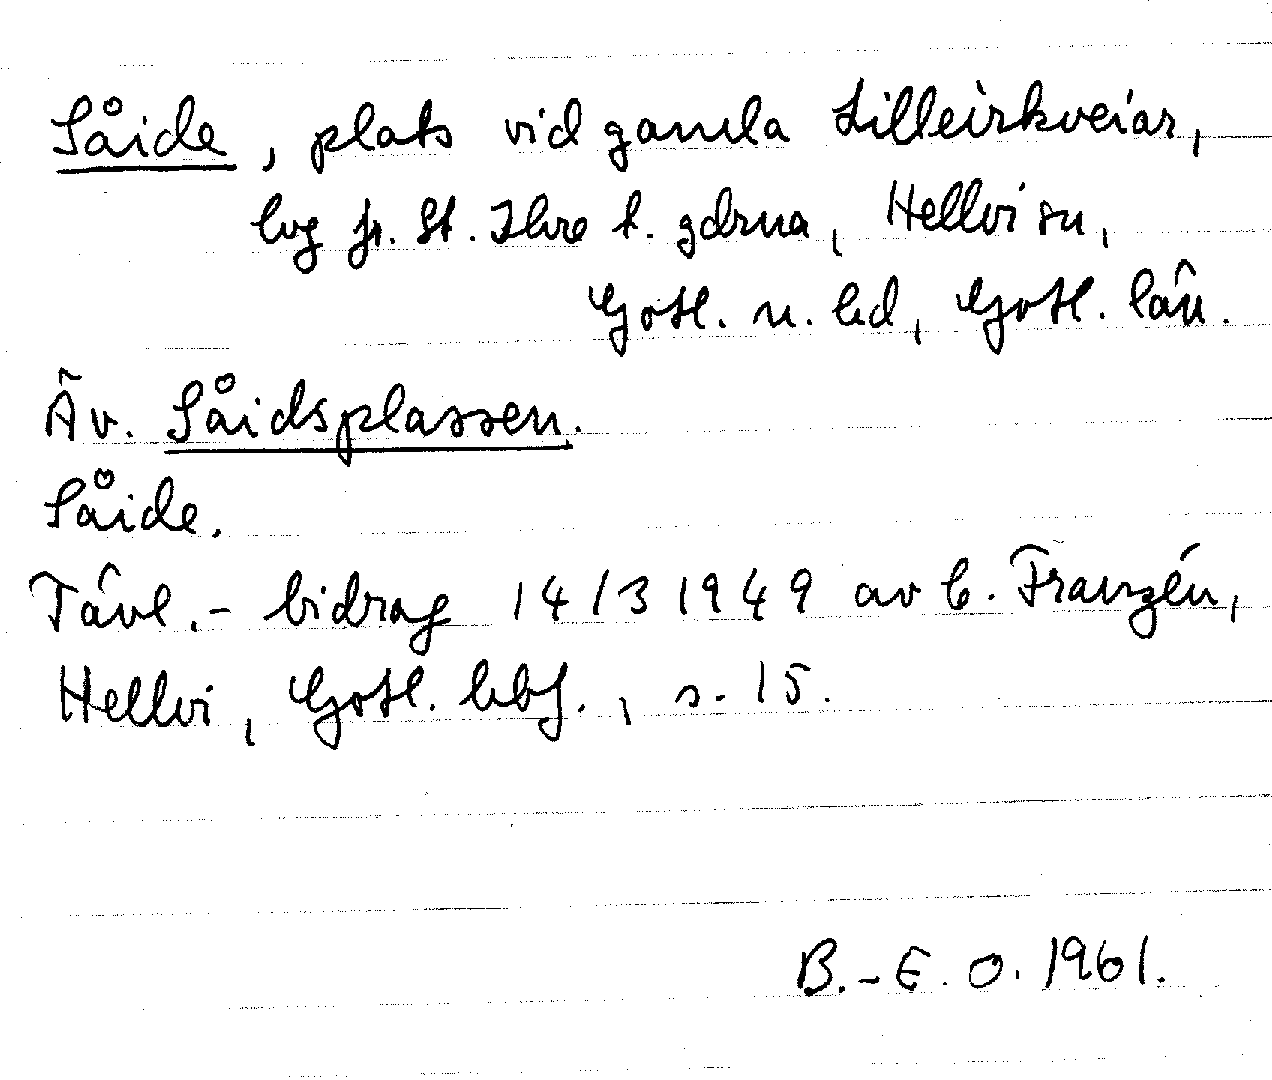 Såide, plats vid gamla Lilleirkveiar,
lvg fr. St. Ihre t. gdrna, Hellvi sn,
Gotl. n. hd, Gotl. län.
Äv. Såidsplassen.
Såide.
Tävl.- bidrag 14/3 1949 av C. Franzén,
Hellvi, Gotl. hbf., s. 15.
B.-E. O. 1961.